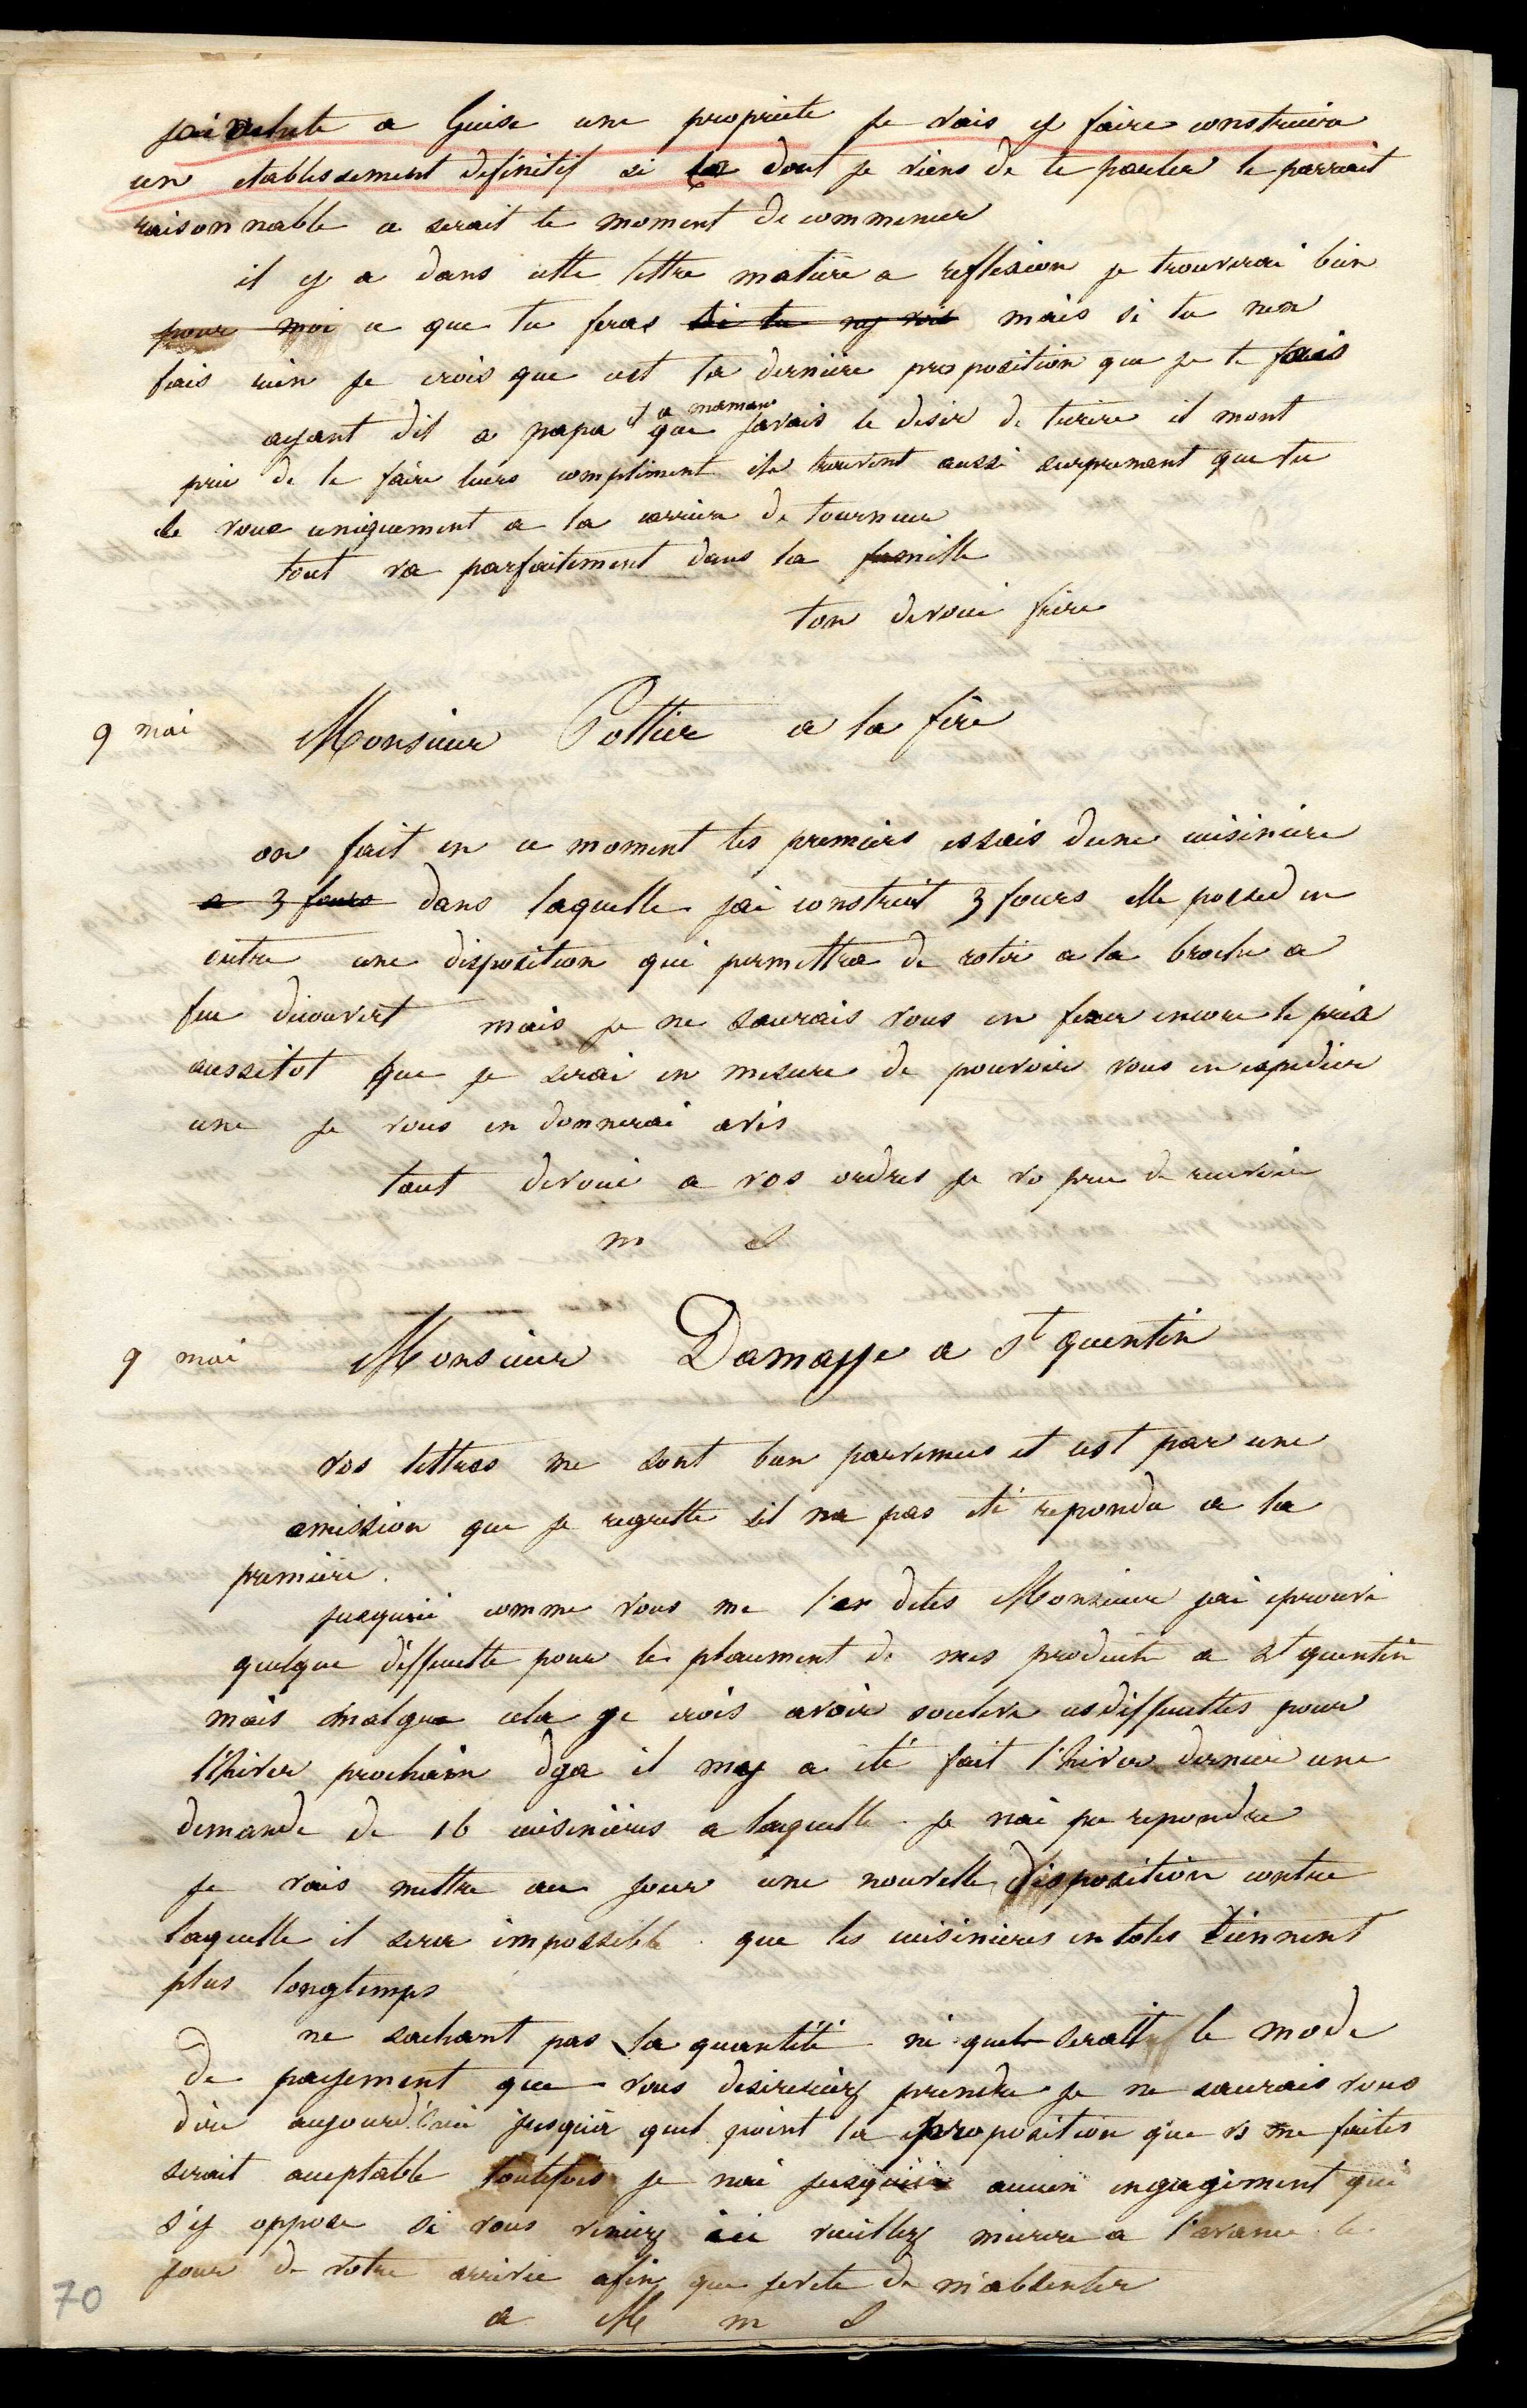 jai achete a Guise une propriete je vais y faire construire
un etablissement definitif si ce dont je viens de te parler te parrait
raisonnable ce serait le moment de commencer
il y a dans cette lettre matière a reflexion je trouverai bien
pour moi ce que tu feras si tu ny vois mais si tu nen
fais rien je crois que cest la derniere proposition que je te fais
ayant dit a papa et a maman que javais le desir de tecrire il mont
prié de te faire leurs compliment ils trouvent aussi surprenant que tu
te voue uniquement a la carriere de tourneur
tout va parfaitement dans la famille
ton devoué frere
9 mai Monsieur Pottier a la fère
on fait en ce moment les premiers essais dune cuisiniere
a 3 fours dans laquelle jai construit 3 fours elle possed en
outre une disposition qui permettra de rotir a la broche a
feu decouvert mais je ne saurais vous en fixer encore le prix
aussitot que je serai en mesure de pouvoir vous en expedier
une je vous en donnerai avis
tout devoué a vos ordres je vo prie de recevoir
m s
9 mai Monsieur Damasse a St quentin
vos lettres me sont bien parvenues et cest par une
omission que je regrette sil na pas été repondu a la
premiere.
jusquici comme vous me l'en dites Monsieur jai eprouvé
quelque difficulte pour le placement de mes produits a St quentin
mais malgre cela je crois avoir soulevé ces difficultes pour
l'hiver prochain deja il my a été fait l'hiver dernier une
demande de 16 cuisinières a laquelle je nai pu repondre
je vais mettre au jour une nouvelle disposition contre
laquelle il sera impossible que les cuisinieres en toles tiennent
plus longtemps
ne sachant pas la quantité ni quel serait le mode
De payement que vous desireriez prendre je ne saurais vous
dire aujourd'hui jusqua quel point la proposition que vs me faites
serait acceptable toutefois je nai jusquici aucun engagement qui
s'y oppose si vous veniez ici veuillez mecrire a l'avance le
jour de votre arrivée afin que jevite de m'absenter
a M m s
70